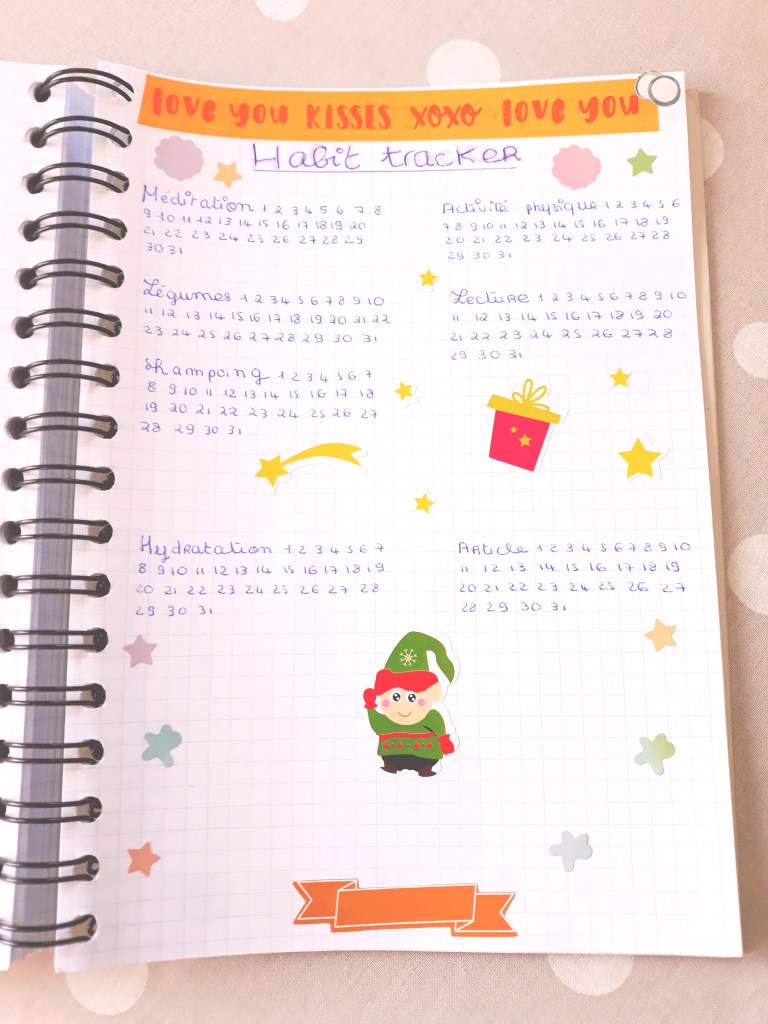 love you KISSES XOXO love you
Habit tracker
Méditation 1 2 3 4 5 6 7 8
9 10 11 12 13 14 15 16 17 18 19 20
21 22 23 24 25 26 27 28 29
30 31
Activité physique 1 2 3 4 5 6
7 8 9 10 11 12 13 14 15 16 17 18 19
20 21 22 23 24 25 26 27 28
29 30 31
Légumes 1 2 3 4 5 6 7 8 9 10
11 12 13 14 15 16 17 18 19 20 21 22
23 24 25 26 27 28 29 30 31
Lecture 1 2 3 4 5 6 7 8 9 10
11 12 13 14 15 16 17 18 19 20
21 22 23 24 25 26 27 28
29 30 31
Shampoing 1 2 3 4 5 6 7
8 9 10 11 12 13 14 15 16 17 18
19 20 21 22 23 24 25 26 27
28 29 30 31
Hydratation 1 2 3 4 5 6 7
8 9 10 11 12 13 14 15 16 17 18 19
20 21 22 23 24 25 26 27 28
29 30 31
Article 1 2 3 4 5 6 7 8 9 10
11 12 13 14 15 16 17 18 19
20 21 22 23 24 25 26 27
28 29 30 31